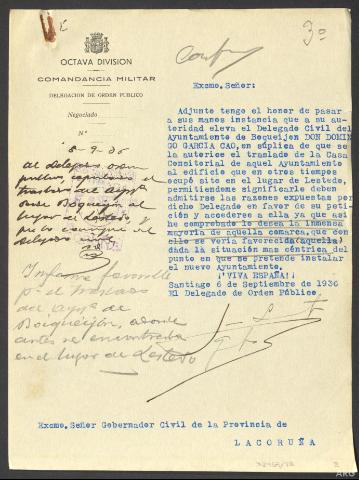 3º
OCTAVA DIVISION
COMANDANCIA MILITAR
DELEGACION DE ORDEN PUBLICO
Negociado
Nº
8-9-36
Al Delegado orden
público,
traslado del Aytº
de Boqueijón al
lugar de Lestedo, y
Delegado
Informe favorable
pª el traslado
del Aytº de
Boqueijón, a donde
antes se encontraba
en el lugar de Lestedo
Excmo. Señor:
Adjunto tengo el honor de pasar
a sus manos instancia que a su au-
toridad eleva el Delegado Civil del
Ayuntamiento de Boqueijon DON DOMIN
GO GARCIA CAO, en súplica de que se
la autorice el traslado de la Casa
Consitorial de aquel Ayuntamiento
al edificio que en otros tiempos
ocupó sito en el lugar de Lestedo,
permitiendome significarle deben
admitirse las razones expuestas por
dicho Delegado en favor de su peti-
ción y accederse a ella ya que así
he comprobado lo desea la inmensa
mayoria de aquella comarca, que con
ello se vería favorecida (aquella)
dada la situación mas céntrica del
punto en que se pretende instalar
el nuevo Ayuntamiento.
¡¡VIVA ESPAÑA!!
Santiago 6 de Septiembre de 1936
El Delegado de Orden Público.
Excmo. Señor Gobernador Civil de la Provincia de
LACORUÑA
ARG